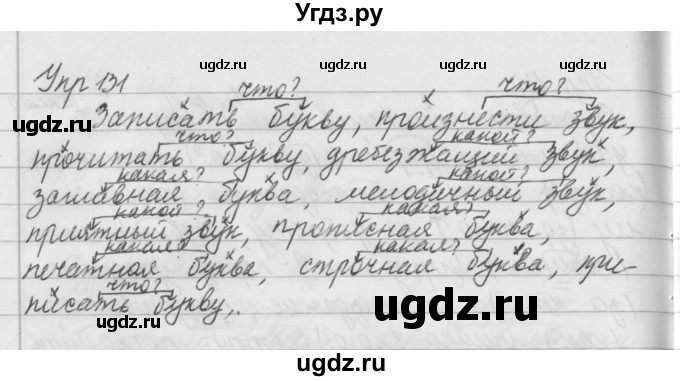 Угдз.ру
ugdz.ru ugdz.ru
Упр 131 что? что?
ugdz.ru
Записать букву, произнести звук,
что? какой?
прочитать букву, дребезжащий звук,
какая? какой?
заглавная буква, мелодичный звук,
какой? какая?
приятный звук, прописная буква,
какая? какая?
печатная буква, строчная буква, при-
что?
писать букву.
ugdz.ru
ugdz.ru
ugdz.ru
ugdz.ru
ugdz.ru
ugdz.ru
ugdz.ru
ugdz.ru
ugdz.ru